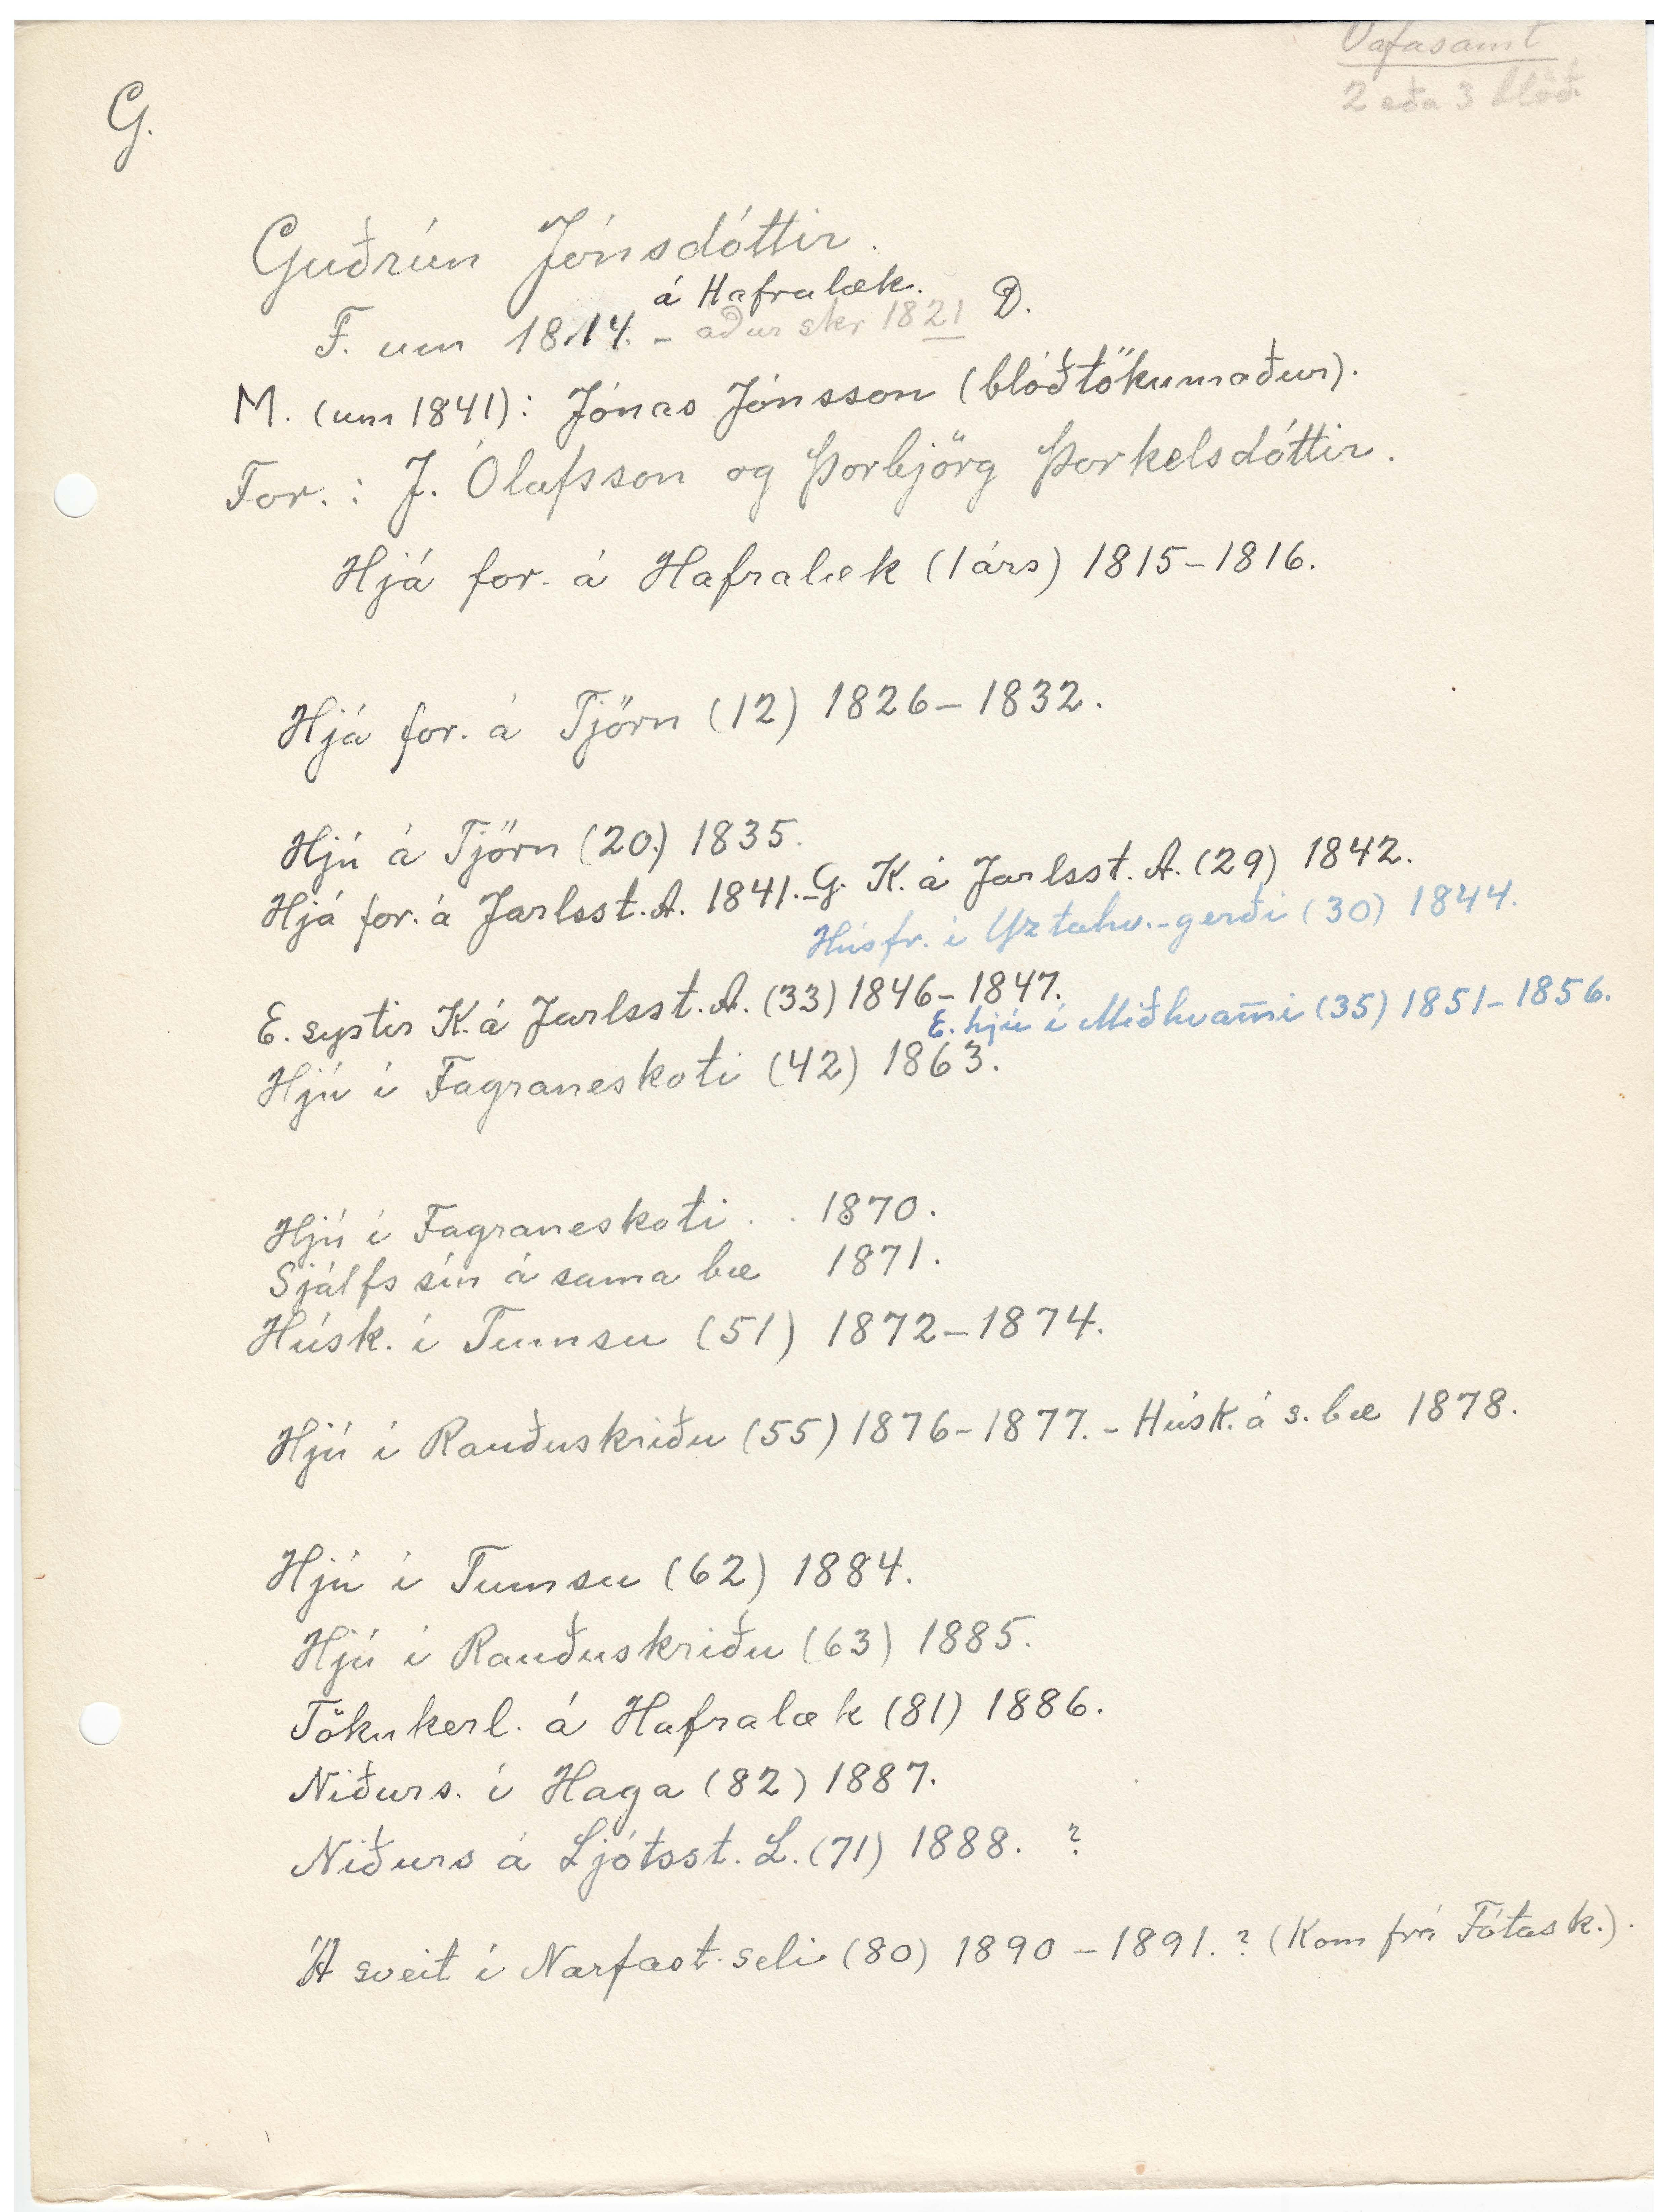 Vafasamt
2 eða 3 blöð.
G.
Guðrún Jónsdóttir.
á Hafralæk. D.
F. um 1814. - aður skr 1821
M. (um 1841): Jónas Jónsson (blóðtökumaður).
For.: J. Ólafsson og Þorbjörg Þorkelsdóttir.
Hjá for. á Hafralæk (1 árs) 1815-1816.
Hjá for. á Tjörn (12) 1826-1832.
Hjú á Tjörn (20) 1835.
Hjá for. á Jarlsst. A. 1841.- G. K. á Jarlsst. A. (29) 1842.
Húsfr. í Yztahv.-gerði (30) 1844.
E. systir K. á Jarlsst. A. (33) 1846-1847.
E. hjú í Miðhvam̅i (35) 1851-1856.
Hjú í Fagraneskoti (42) 1863.
Hjú í Fagraneskoti . . 1870.
Sjálfs sín á sama bæ 1871.
Húsk. í Tumsu (51) 1872-1874.
Hjú í Rauðuskriðu (55) 1876-1877. - Húsk. á s. bæ 1878.
Hjú í Tumsu (62) 1884.
Hjú í Rauðuskriðu (63) 1885.
Tökukerl. á Hafralæk (81) 1886.
Niðurs. í Haga (82) 1887.
Niðurs á Ljótsst. L. (71) 1888. ?
Á sveit í Narfast.seli (80) 1890-1891. ? (Kom frá Fótask.).